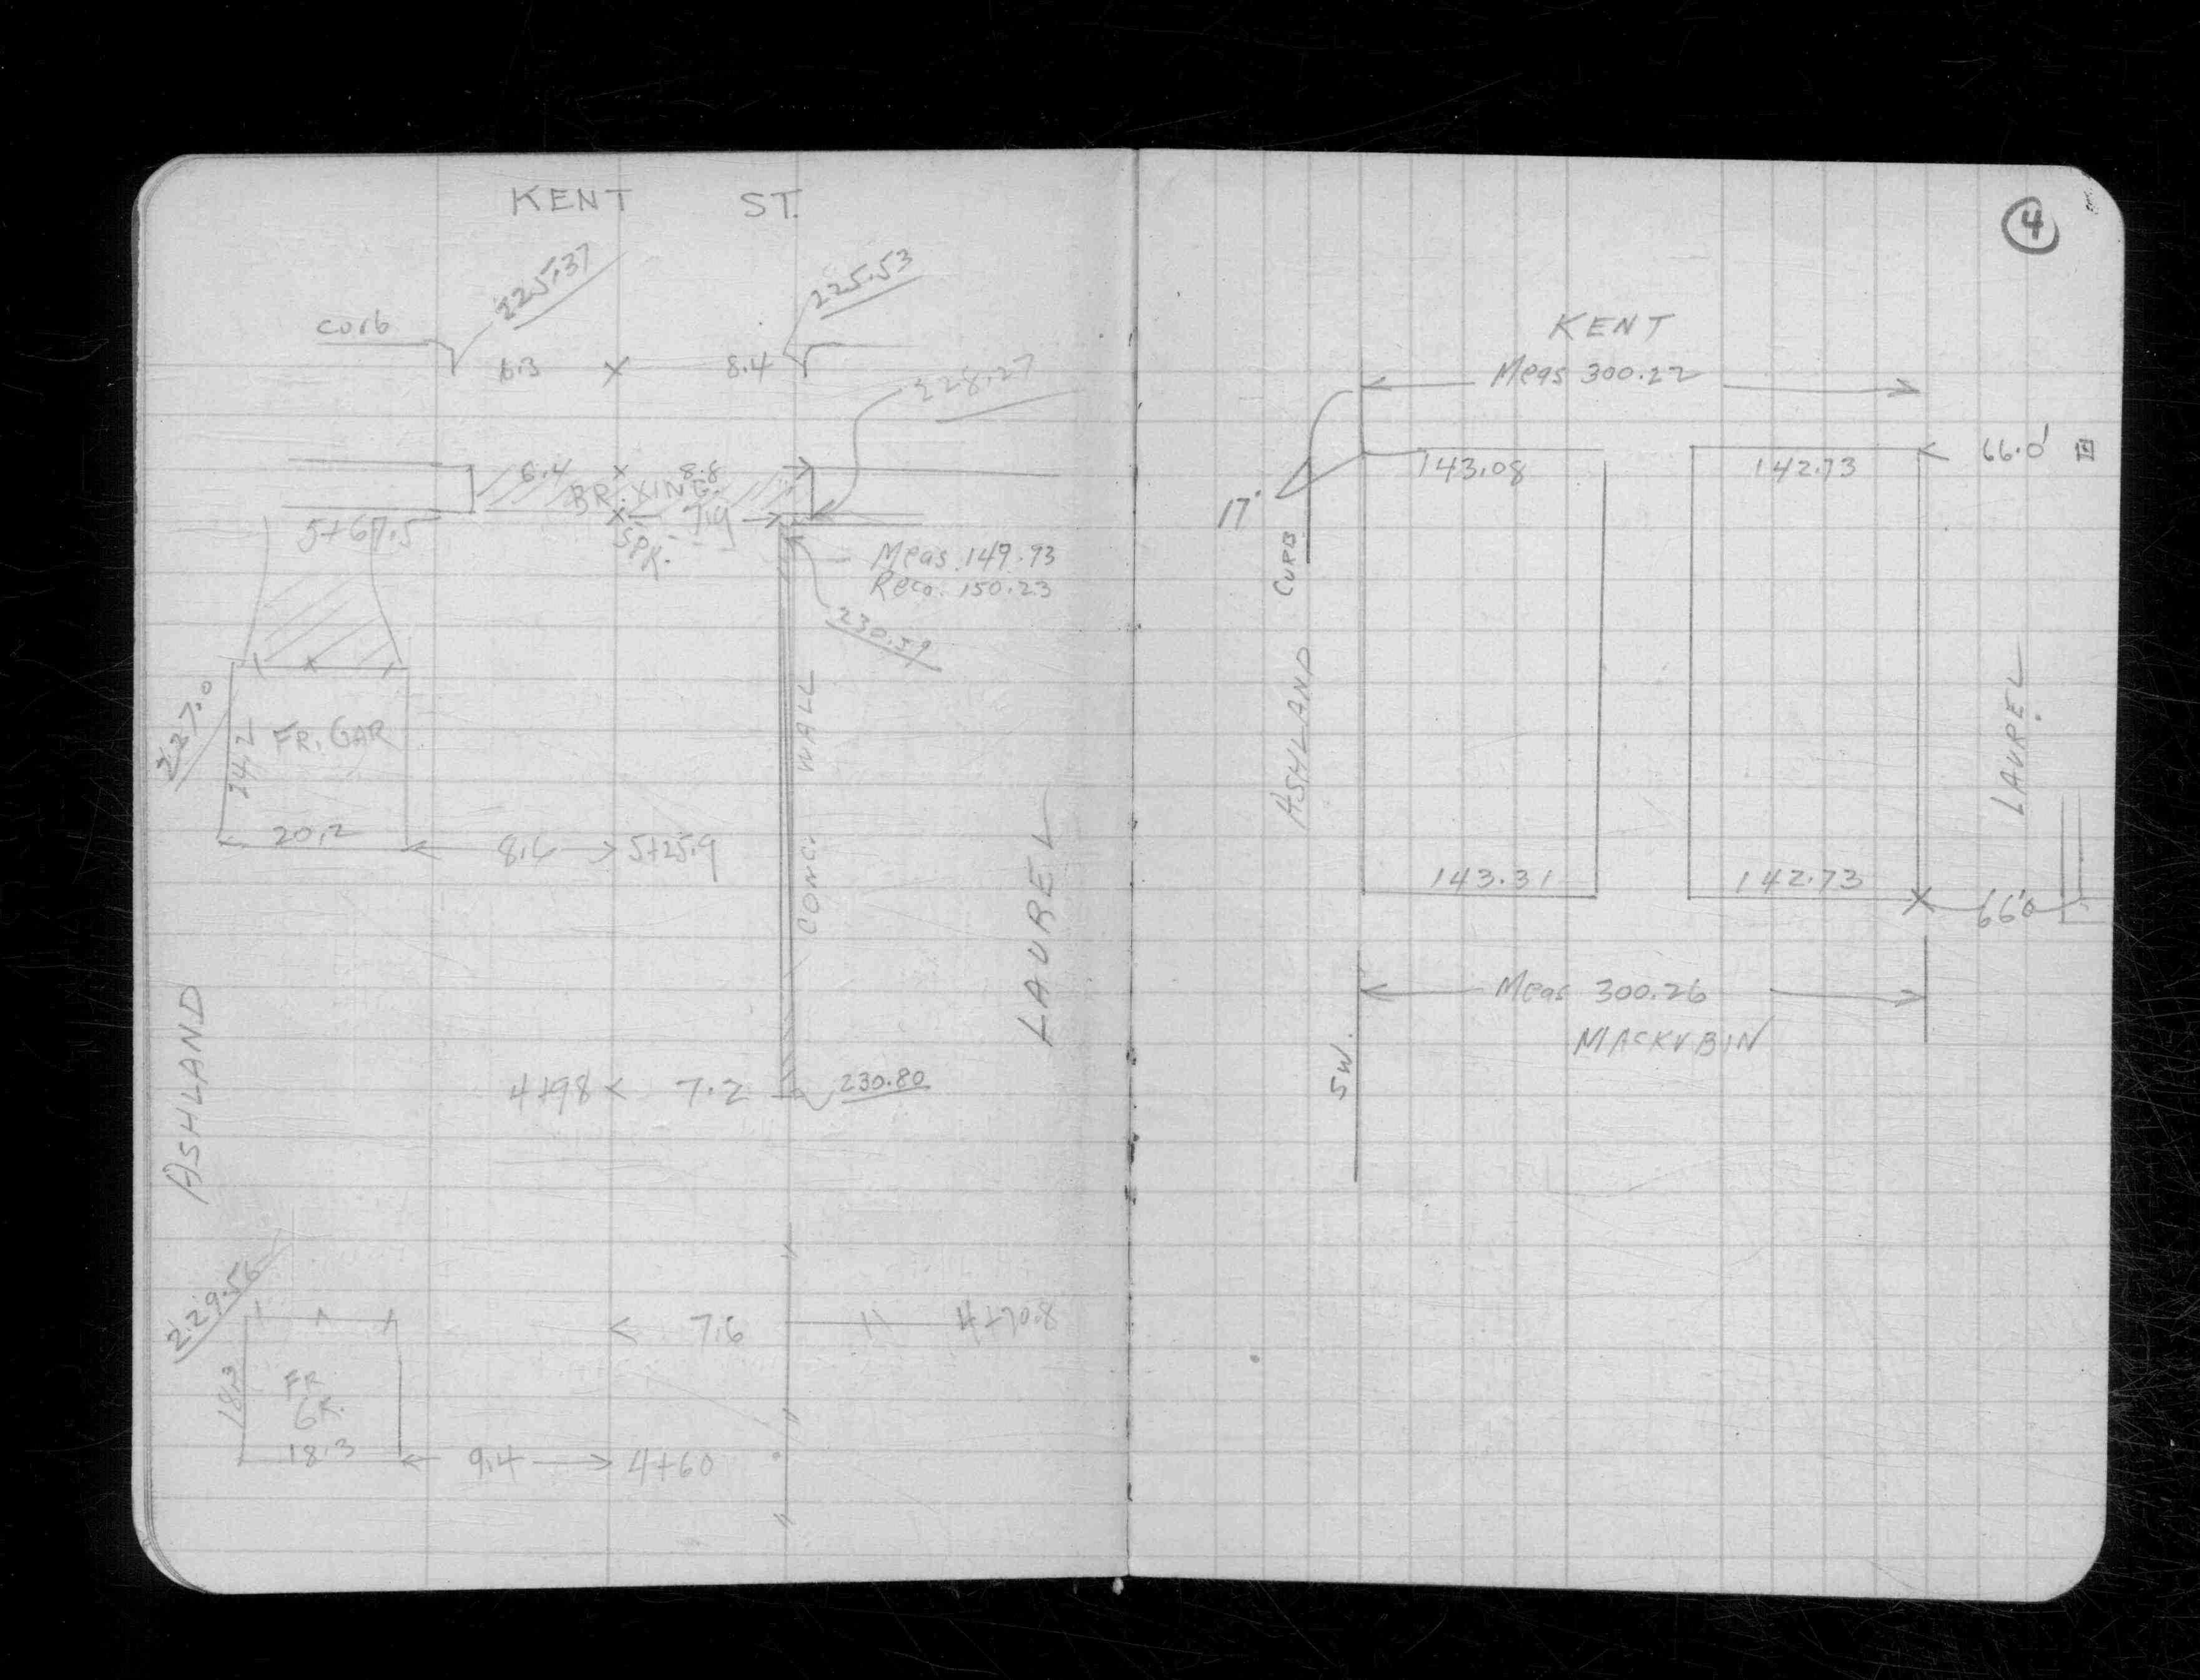 KENT ST.
225.37
225.53
curb
6.3 X 8.4
228.27
6.4 X 8.8
BR. XING.
5+67.5
X 7.9
SPK.
Meas. 149.93
Reco. 150.23
230.59
227.0
14.2
FR. GAR
20.2
8.6 5+25.9
CONC. WALL
LAUREL
ASHLAND
4+98 7.2
230.80
229.56
7.6 4+70.8
18.3
FR.
GR.
18.3
9.4 4+60
4
KENT
Meas 300.22
66.0'
143.08 142.73
17'
CURB
ASHLAND
LAUREL
143.31 142.73
X 66.0
Meas 300.26
MACKUBIN
SW.